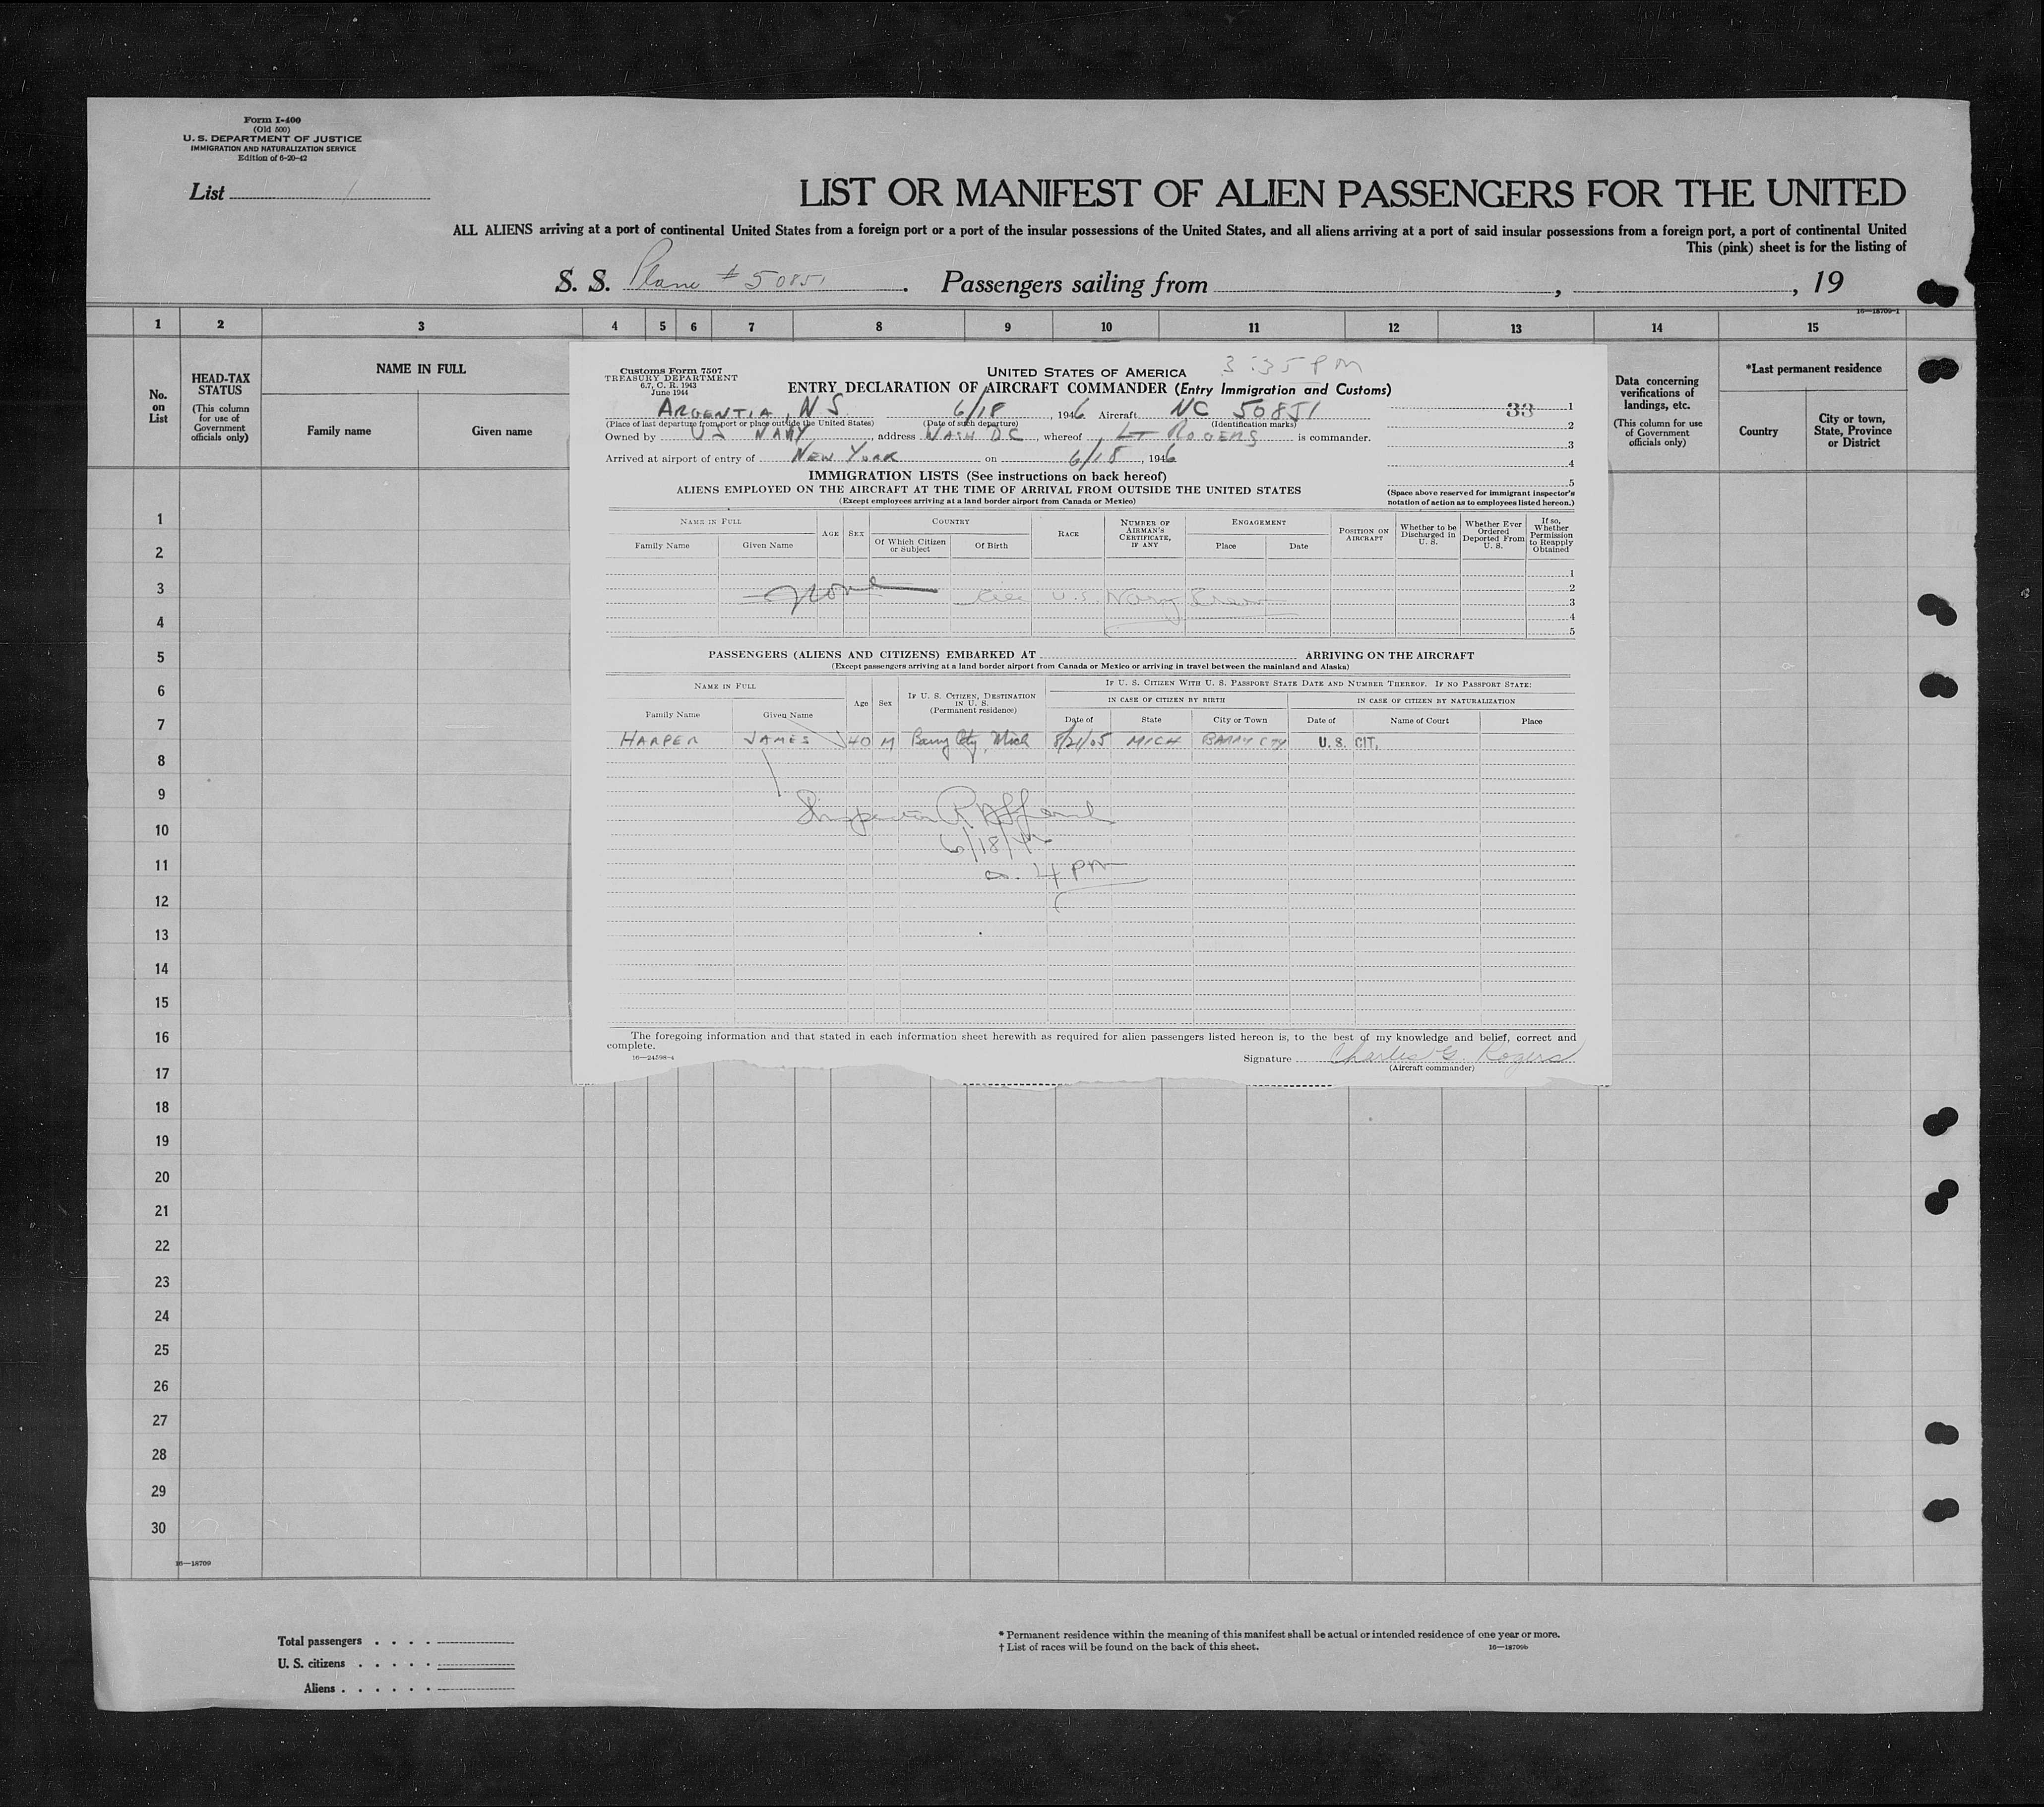 Form I-400
(Old 500)
U. S. DEPARTMENT OF JUSTICE
IMMIGRATION AND NATURALIZATION SERVICE
Edition of 6-20-42
List 1
LIST OR MANIFEST OF ALIEN PASSENGERS FOR THE UNITED
ALL ALIENS arriving at a port of continental United States from a foreign port or a port of the insular possessions of the United States, and all aliens arriving at a port of said insular possessions from a foreign port, a port of continental United
This (pink) sheet is for the listing of
S. S. Plane # 50851. Passengers sailing from , , 19
16—18709-1
1 2 3 4 5 6 7 8 9 10 11 12 13 14 15
No. on List
HEAD-TAX STATUS
(This column for use of Government officials only)
NAME IN FULL
Family name Given name
Data concerning verifications of landings, etc.
(This column for use of Government officials only)
*Last permanent residence
Country
City or town, State, Province or District
Customs Form 7507
TREASURY DEPARTMENT
6.7, C. R. 1943
June 1944
UNITED STATES OF AMERICA 3:35 PM
ENTRY DECLARATION OF AIRCRAFT COMMANDER (Entry Immigration and Customs)
ARGENTIA, NS 6/18, 1946 Aircraft NC 50851 33 1
(Place of last departure from port or place outside the United States) (Date of such departure) (Identification marks) 2
Owned by US NAVY, address WASH DC, whereof LT ROGERS is commander. 3
Arrived at airport of entry of NEW YORK on 6/18, 1946 4
IMMIGRATION LISTS (See instructions on back hereof) 5
ALIENS EMPLOYED ON THE AIRCRAFT AT THE TIME OF ARRIVAL FROM OUTSIDE THE UNITED STATES
(Except employees arriving at a land border airport from Canada or Mexico)
(Space above reserved for immigrant inspector's notation of action as to employees listed hereon.)
NAME IN FULL
Family Name Given Name
AGE SEX
COUNTRY
Of Which Citizen or Subject Of Birth
RACE
NUMBER OF AIRMAN'S CERTIFICATE, IF ANY
ENGAGEMENT
Place Date
POSITION ON AIRCRAFT
Whether to be Discharged in U. S.
Whether Ever Ordered Deported From U. S.
If so, Whether Permission to Reapply Obtained
1
2
None U.S. Navy Crew 3
4
5
PASSENGERS (ALIENS AND CITIZENS) EMBARKED AT ARRIVING ON THE AIRCRAFT
(Except passengers arriving at a land border airport from Canada or Mexico or arriving in travel between the mainland and Alaska)
NAME IN FULL
Family Name Given Name
Age Sex
IF U. S. CITIZEN, DESTINATION IN U. S.
(Permanent residence)
IF U. S. CITIZEN WITH U. S. PASSPORT STATE DATE AND NUMBER THEREOF. IF NO PASSPORT STATE:
IN CASE OF CITIZEN BY BIRTH IN CASE OF CITIZEN BY NATURALIZATION
Date of State City or Town Date of Name of Court Place
HARPER JAMES 40 M Barry Cty, Mich 8/21/05 MICH BARRY CTY U. S. CIT.
Inspector
6/18/46
4 PM
The foregoing information and that stated in each information sheet herewith as required for alien passengers listed hereon is, to the best of my knowledge and belief, correct and
complete.
16—24598-4
Signature Charles G. Rogers
(Aircraft commander)
1
2
3
4
5
6
7
8
9
10
11
12
13
14
15
16
17
18
19
20
21
22
23
24
25
26
27
28
29
30
16—18709
Total passengers . . . .
U. S. citizens . . . . .
Aliens . . . . . .
* Permanent residence within the meaning of this manifest shall be actual or intended residence of one year or more.
† List of races will be found on the back of this sheet.
16—18709b